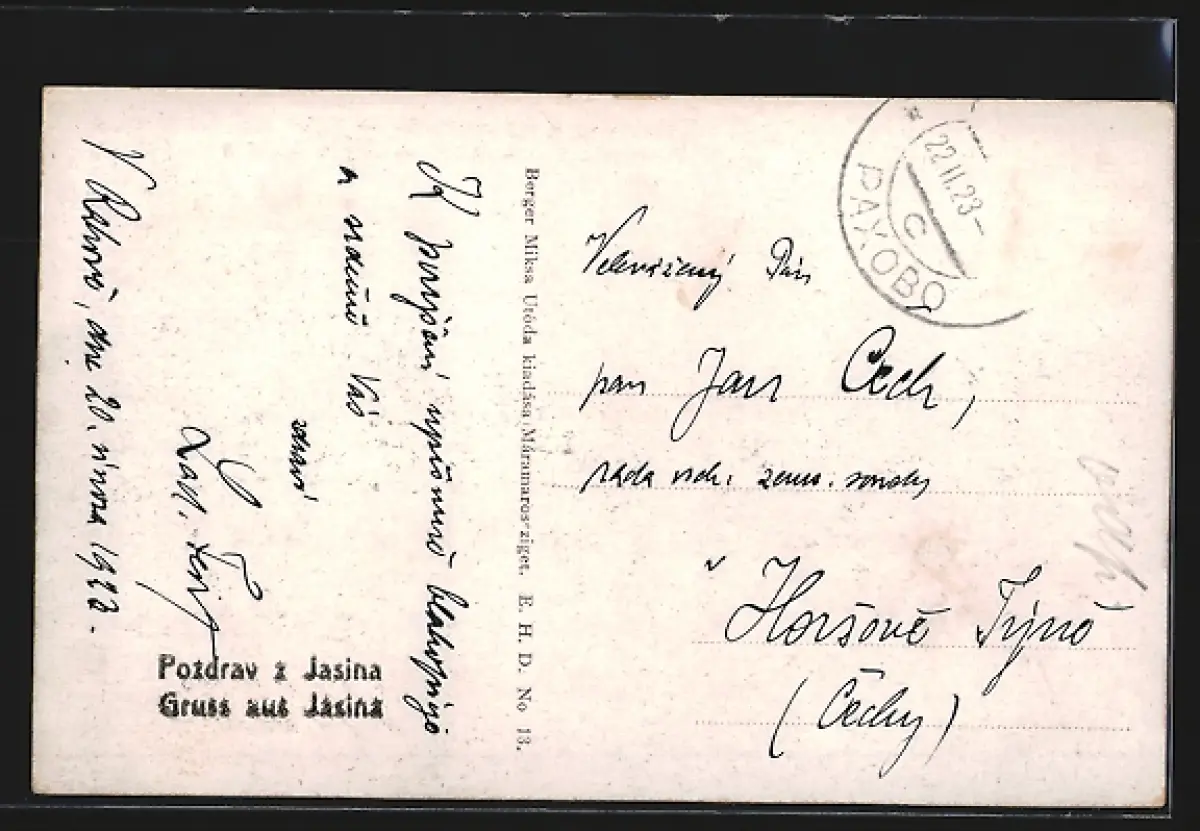 V Rahově, dne 20. února 1923.
K povýšení upřímně blahopřeje
a srdečně Vás
zdraví
Lad.
Pozdrav z Jasina
Gruss aus Jasina
Berger Miksa Utóda kiadása Máramaros-ziget. E. H. D. No 13.
22.II.23
C
РАХОВО
Velevážený Pán
pan Jan Čech,
rada vrch. zems. soudu
v Horšově Týně
(Čechy)